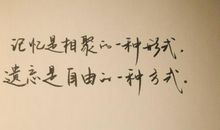 记忆是相聚的一种形式.
遗忘是自由的一种方式.